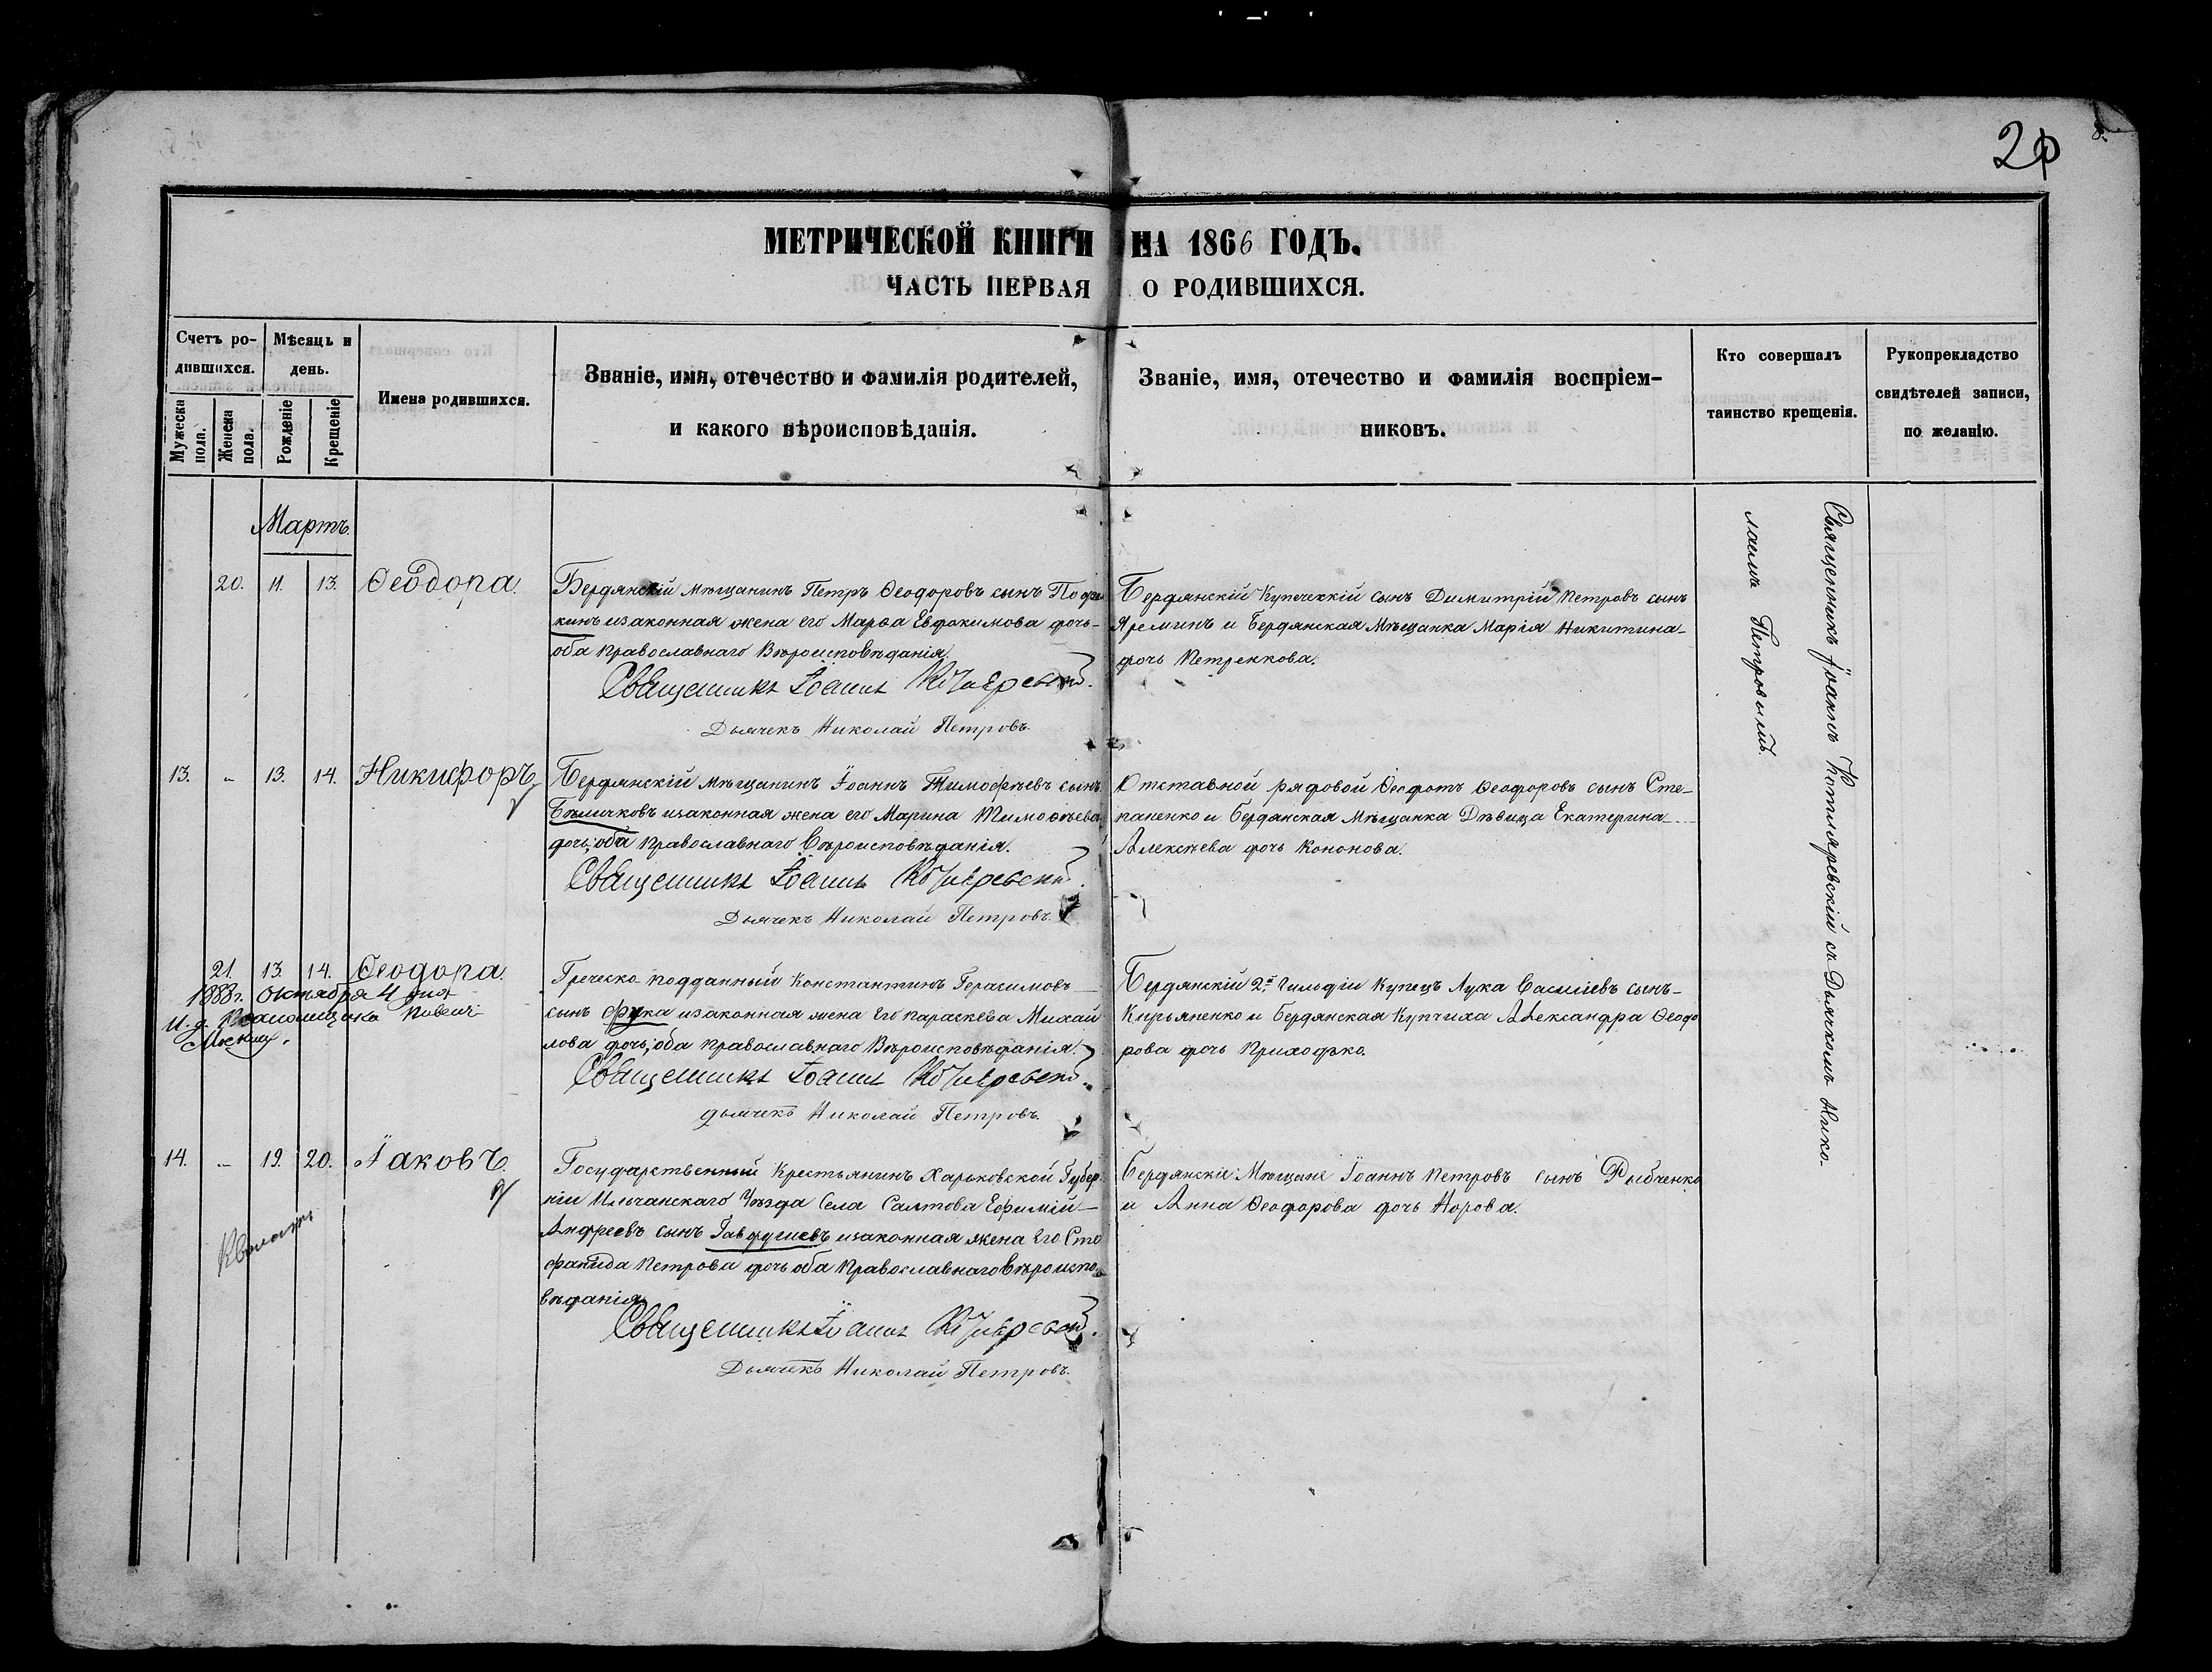 20
8.
МЕТРИЧЕСКОЙ КНИГИ НА 1866 ГОДЪ.
ЧАСТЬ ПЕРВАЯ О РОДИВШИХСЯ.
Счетъ ро-
дившихся.
Мужеска пола.
Женска пола.
Мѣсяцъ и
день.
Рожденіе
Крещеніе
Имена родившихся.
Званіе, имя, отечество и фамилія родителей,
и какого вѣроисповѣданія.
Званіе, имя, отечество и фамилія воспріем-
никовъ.
Кто совершалъ
таинство крещенія.
Рукоприкладство
свидѣтелей записи,
по желанію.
Мартъ.
20. 11. 13. Ѳеодора.
Бердянскій мѣщанинъ Петръ Ѳеодоровъ сынъ
кинъ изаконная жена его Марѳа Евдокимова дочь-
оба православнаго Вѣроисповѣданія.
Священникъ Іоаннъ Котляревскій.
Дьячекъ Николай Петровъ.
Бердянскій Купеческій сынъ Димитрій Петровъ сынъ
Яреминъ и Бердянская Мѣщанка Марія Никитина-
дочь Петренкова.
13. - 13. 14. Никифоръ
Бердянскій мѣщанинъ Іоаннъ Тимофѣевъ сынъ
изаконная жена его Марина Тимоѳѣева
дочь, оба православнаго Вѣроисповѣданія.
Священникъ Іоаннъ Котляревскій.
Дьячекъ Николай Петровъ.
Отставной рядовой Ѳеофотъ Ѳеодоровъ сынъ Сте-
паненко и Бердянская Мѣщанка Дѣвица Екатерина-
Алексѣева дочь Кононова.
21. 13. 14. Ѳеодора.
1888г. Октября 4 дня
И. д.
Греческо-подданный Константинъ Герасимовъ
сынъ Фука изаконная жена его Параскева Михай
лова дочь, оба православнаго Вѣроисповѣданія.
Священникъ Іоаннъ Котляревскій.
дьячекъ Николай Петровъ.
Бердянскій 2й Гильдіи Купецъ Лука Василіевъ сынъ-
Кирьяненко и Бердянская Купчиха Александра Ѳеодо
рова дочь Приходько.
14. - 19. 20. Іаковъ.
Государственный Крестьянинъ Харьковской Губер
ніи Уѣзда Села Салтова Ефимій-
Андреевъ сынъ изаконная жена его Сте
фанида Петрова дочь оба Православнаго Вѣроиспо-
вѣданія
Священникъ Іоаннъ Котляревскій.
Дьячекъ Николай Петровъ.
Бердянскіе Мѣщане Іоаннъ Петровъ сынъ Рыбченко
и Анна Ѳеодорова дочь Норова.
Священникъ Іоаннъ Котляревскій съ Дьячкомъ Нико-
лаемъ Петровымъ.